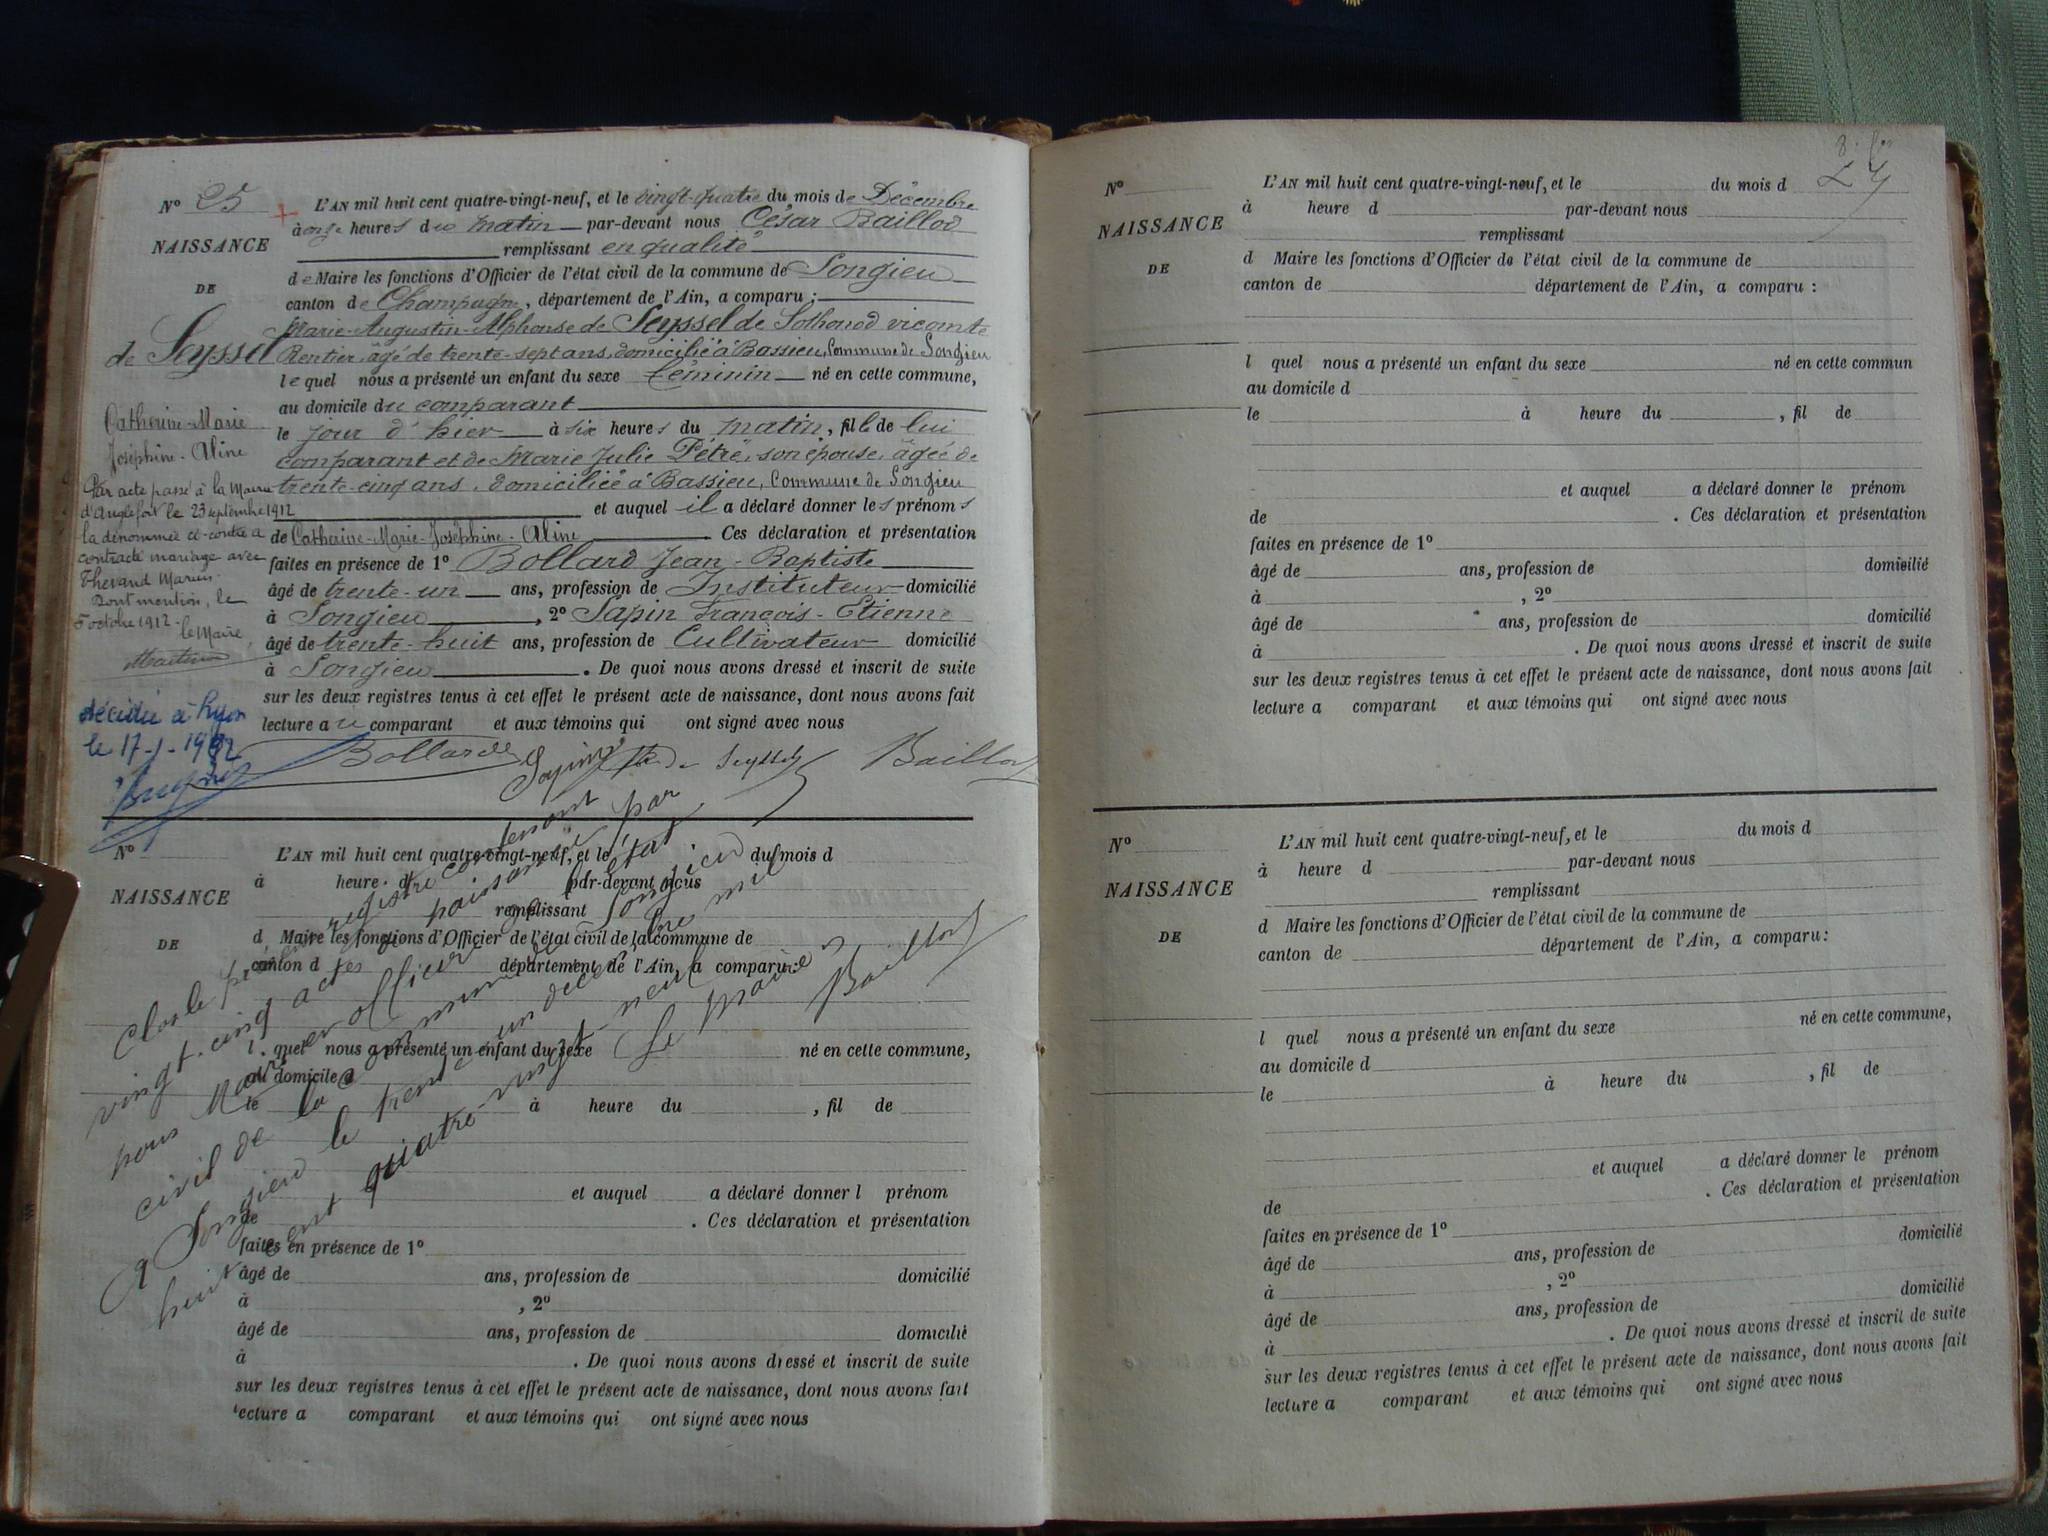 N° 25
NAISSANCE
DE
de Seyssel
Catherine-Marie
Joséphine-Aline
Par acte passé à la Mairie
d'Anglefort le 23 septembre 1912
la dénommée ci-contre a
contracté mariage avec
Dont mention, le
5 octobre 1912.
le Maire,
décédée à Lyon
L'AN mil huit cent quatre-vingt-neuf, et le vingt-quatre du mois de Décembre
à onze heures du matin par-devant nous César Baillod
remplissant en qualité
de Maire les fonctions d'Officier de l'état civil de la commune de Songieu
canton de Champagne, département de l'Ain, a comparu :
Marie-Augustin-Alphonse de Seyssel de Sothonod vicomte
Rentier, âgé de trente-sept ans, domicilié à Bassieu, Commune de Songieu
lequel nous a présenté un enfant du sexe féminin né en cette commune,
au domicile du comparant
le jour d'hier à six heures du matin, fille de lui
comparant et de Marie Julie Pétré, son épouse, âgée de
trente-cinq ans, domiciliée à Bassieu, Commune de Songieu
et auquel il a déclaré donner les prénoms
de Catherine-Marie-Joséphine-Aline. Ces déclaration et présentation
faites en présence de 1° Bollard Jean-Baptiste
âgé de trente-un ans, profession de Instituteur domicilié
à Songieu, 2° Sapin François-Etienne
âgé de trente-huit ans, profession de Cultivateur domicilié
à Songieu. De quoi nous avons dressé et inscrit de suite
sur les deux registres tenus à cet effet le présent acte de naissance, dont nous avons fait
lecture au comparant et aux témoins qui ont signé avec nous
Bollard Sapin de Seyssel Baillod
N°
NAISSANCE
DE
L'AN mil huit cent quatre-vingt-neuf, et le du mois d
à heure d par-devant nous
remplissant
d Maire les fonctions d'Officier de l'état civil de la commune de
canton d département de l'Ain, a comparu :
l quel nous a présenté un enfant du sexe né en cette commune,
au domicile d
le à heure du , fil de
et auquel a déclaré donner l prénom
de . Ces déclaration et présentation
faites en présence de 1°
âgé de ans, profession de domicilié
à , 2°
âgé de ans, profession de domicilié
à . De quoi nous avons dressé et inscrit de suite
sur les deux registres tenus à cet effet le présent acte de naissance, dont nous avons fait
lecture a comparant et aux témoins qui ont signé avec nous
Clos le présent registre contenant
vingt-cinq actes de naissance par
nous Maire officier de l'état
civil de la commune de Songieu
A Songieu le trente un décembre mil
huit cent quatre-vingt-neuf
Le Maire
Baillod
N°
NAISSANCE
DE
L'AN mil huit cent quatre-vingt-neuf, et le du mois d
à heure d par-devant nous
remplissant
d Maire les fonctions d'Officier de l'état civil de la commune de
canton de département de l'Ain, a comparu :
l quel nous a présenté un enfant du sexe né en cette commun
au domicile d
le à heure du , fil de
et auquel a déclaré donner le prénom
de . Ces déclaration et présentation
faites en présence de 1°
âgé de ans, profession de domicilié
à , 2°
âgé de ans, profession de domicilié
à . De quoi nous avons dressé et inscrit de suite
sur les deux registres tenus à cet effet le présent acte de naissance, dont nous avons fait
lecture a comparant et aux témoins qui ont signé avec nous
N°
NAISSANCE
DE
L'AN mil huit cent quatre-vingt-neuf, et le du mois d
à heure d par-devant nous
remplissant
d Maire les fonctions d'Officier de l'état civil de la commune de
canton de département de l'Ain, a comparu :
l quel nous a présenté un enfant du sexe né en cette commune,
au domicile d
le à heure du , fil de
et auquel a déclaré donner le prénom
de . Ces déclaration et présentation
faites en présence de 1°
âgé de ans, profession de domicilié
à , 2°
âgé de ans, profession de domicilié
à . De quoi nous avons dressé et inscrit de suite
sur les deux registres tenus à cet effet le présent acte de naissance, dont nous avons fait
lecture a comparant et aux témoins qui ont signé avec nous